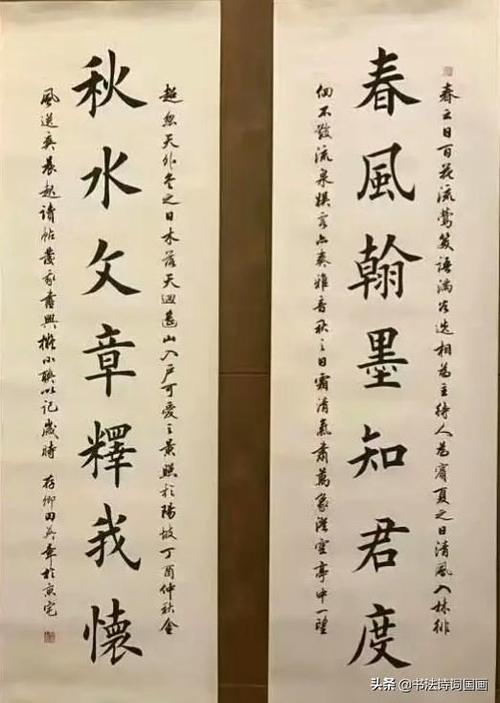 春風翰墨知君度
春之日百花流鶯笑語滿谷迭相為主待人為賓夏之日清風入林徘
徊不散流泉亦奏雅音秋之日霜清氣肅萬象澄空亭中一望
秋水文章釋我懷
超忽天外冬之日木落天迥遠山入戶可愛之景照於陽坡丁酉仲秋金
風送爽晨起讀帖發書興小聯以記歲時 存卿田英章於京宅
头条 @书法诗词国画